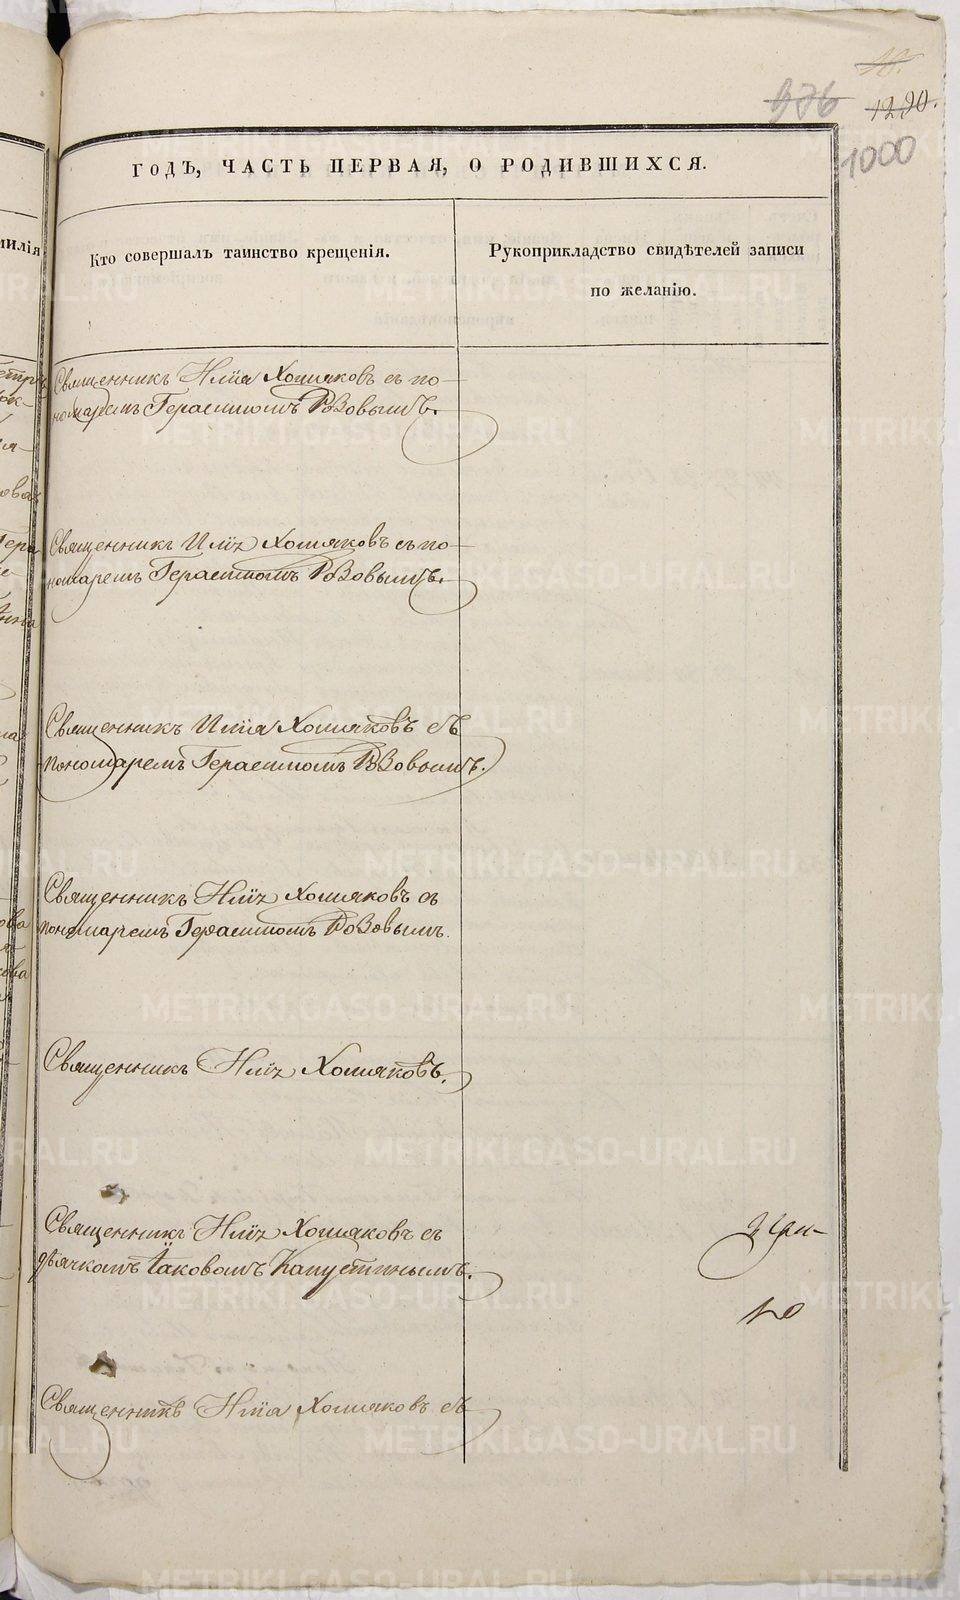 16.
976
1290.
1000
ГОДЪ, ЧАСТЬ ПЕРВАЯ, О РОДИВШИХСЯ.
милія
Кто совершалъ таинство крещенія.
Рукоприкладство свидѣтелей записи
по желанію.
Священникъ Илія Хомяковъ съ по-
номаремъ Герасимомъ Розовымъ.
Священникъ Илія Хомяковъ съ по-
номаремъ Герасимомъ Розовымъ.
Священникъ Илія Хомяковъ съ
пономаремъ Герасимомъ Розовымъ.
Священникъ Илія Хомяковъ съ
пономаремъ Герасимомъ Розовымъ.
Священникъ Илія Хомяковъ.
Священникъ Илія Хомяковъ съ
дьячкомъ Іаковомъ Капустинымъ.
Священникъ Илія Хомяковъ съ
METRIKI.GASO-URAL.RU